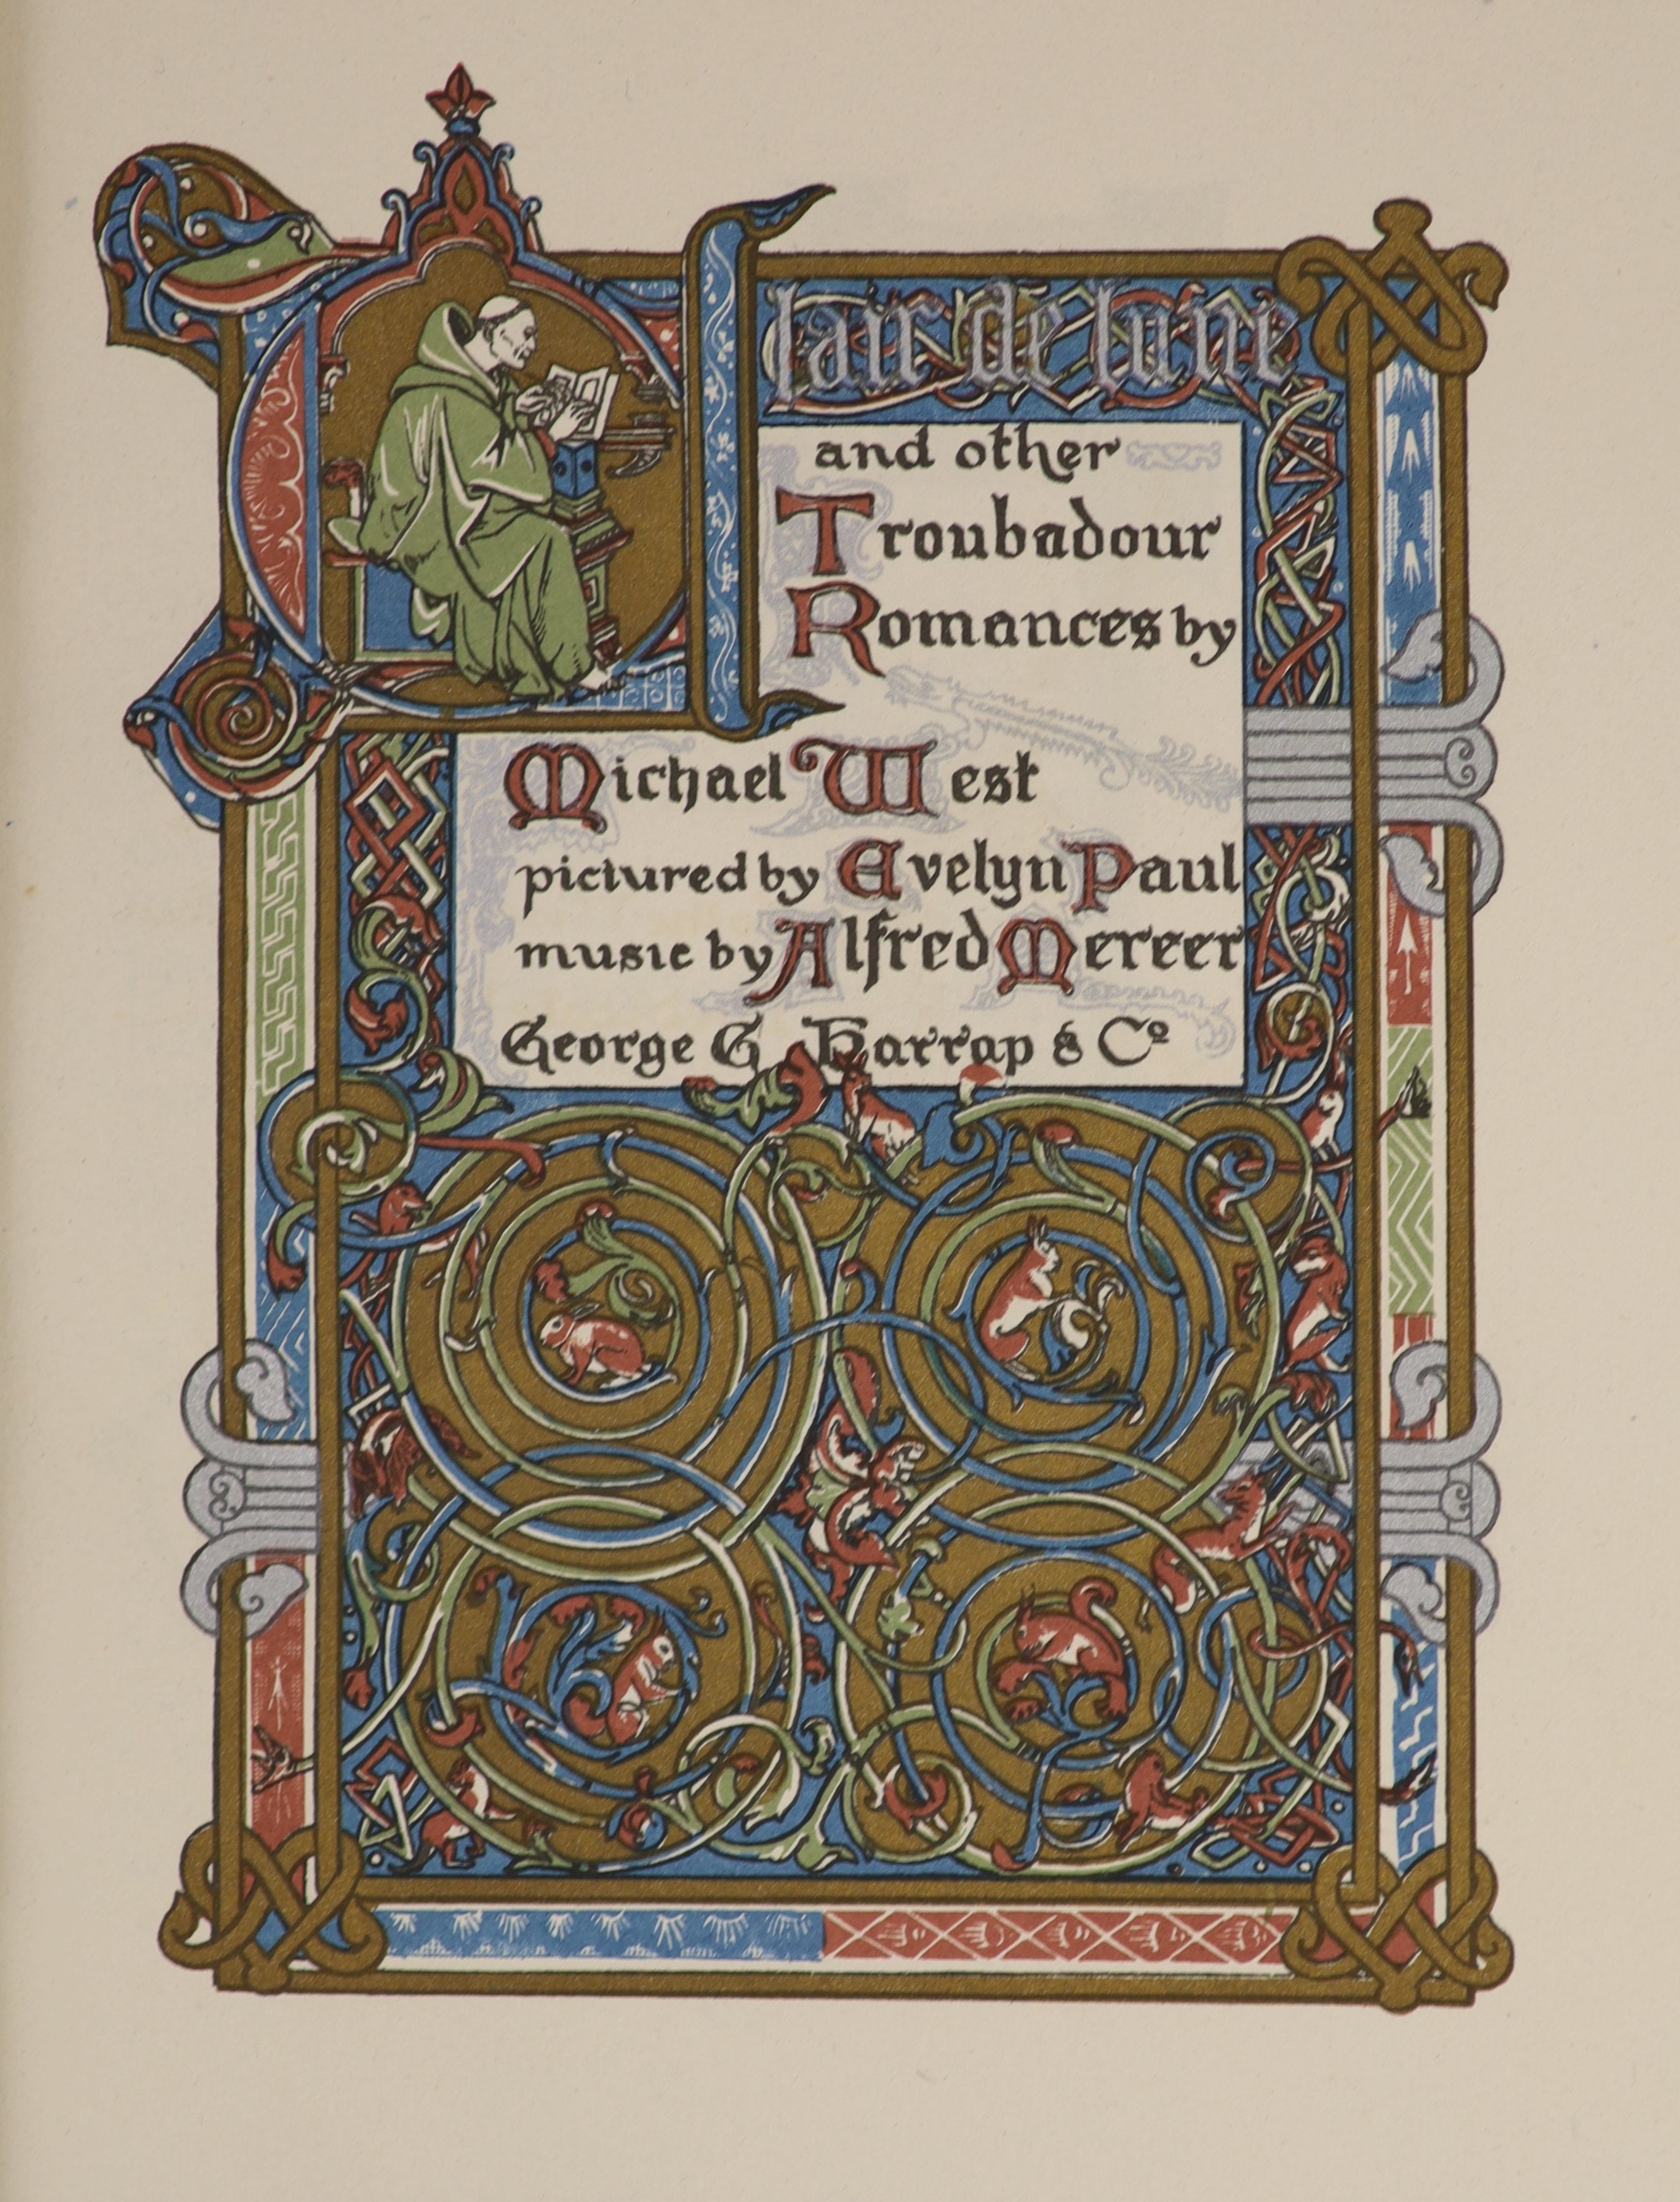 Clair de lune
and other
Troubadour
Romances by
Michael West
pictured by Evelyn Paul
music by Alfred Mercer
George G. Harrap & Cº